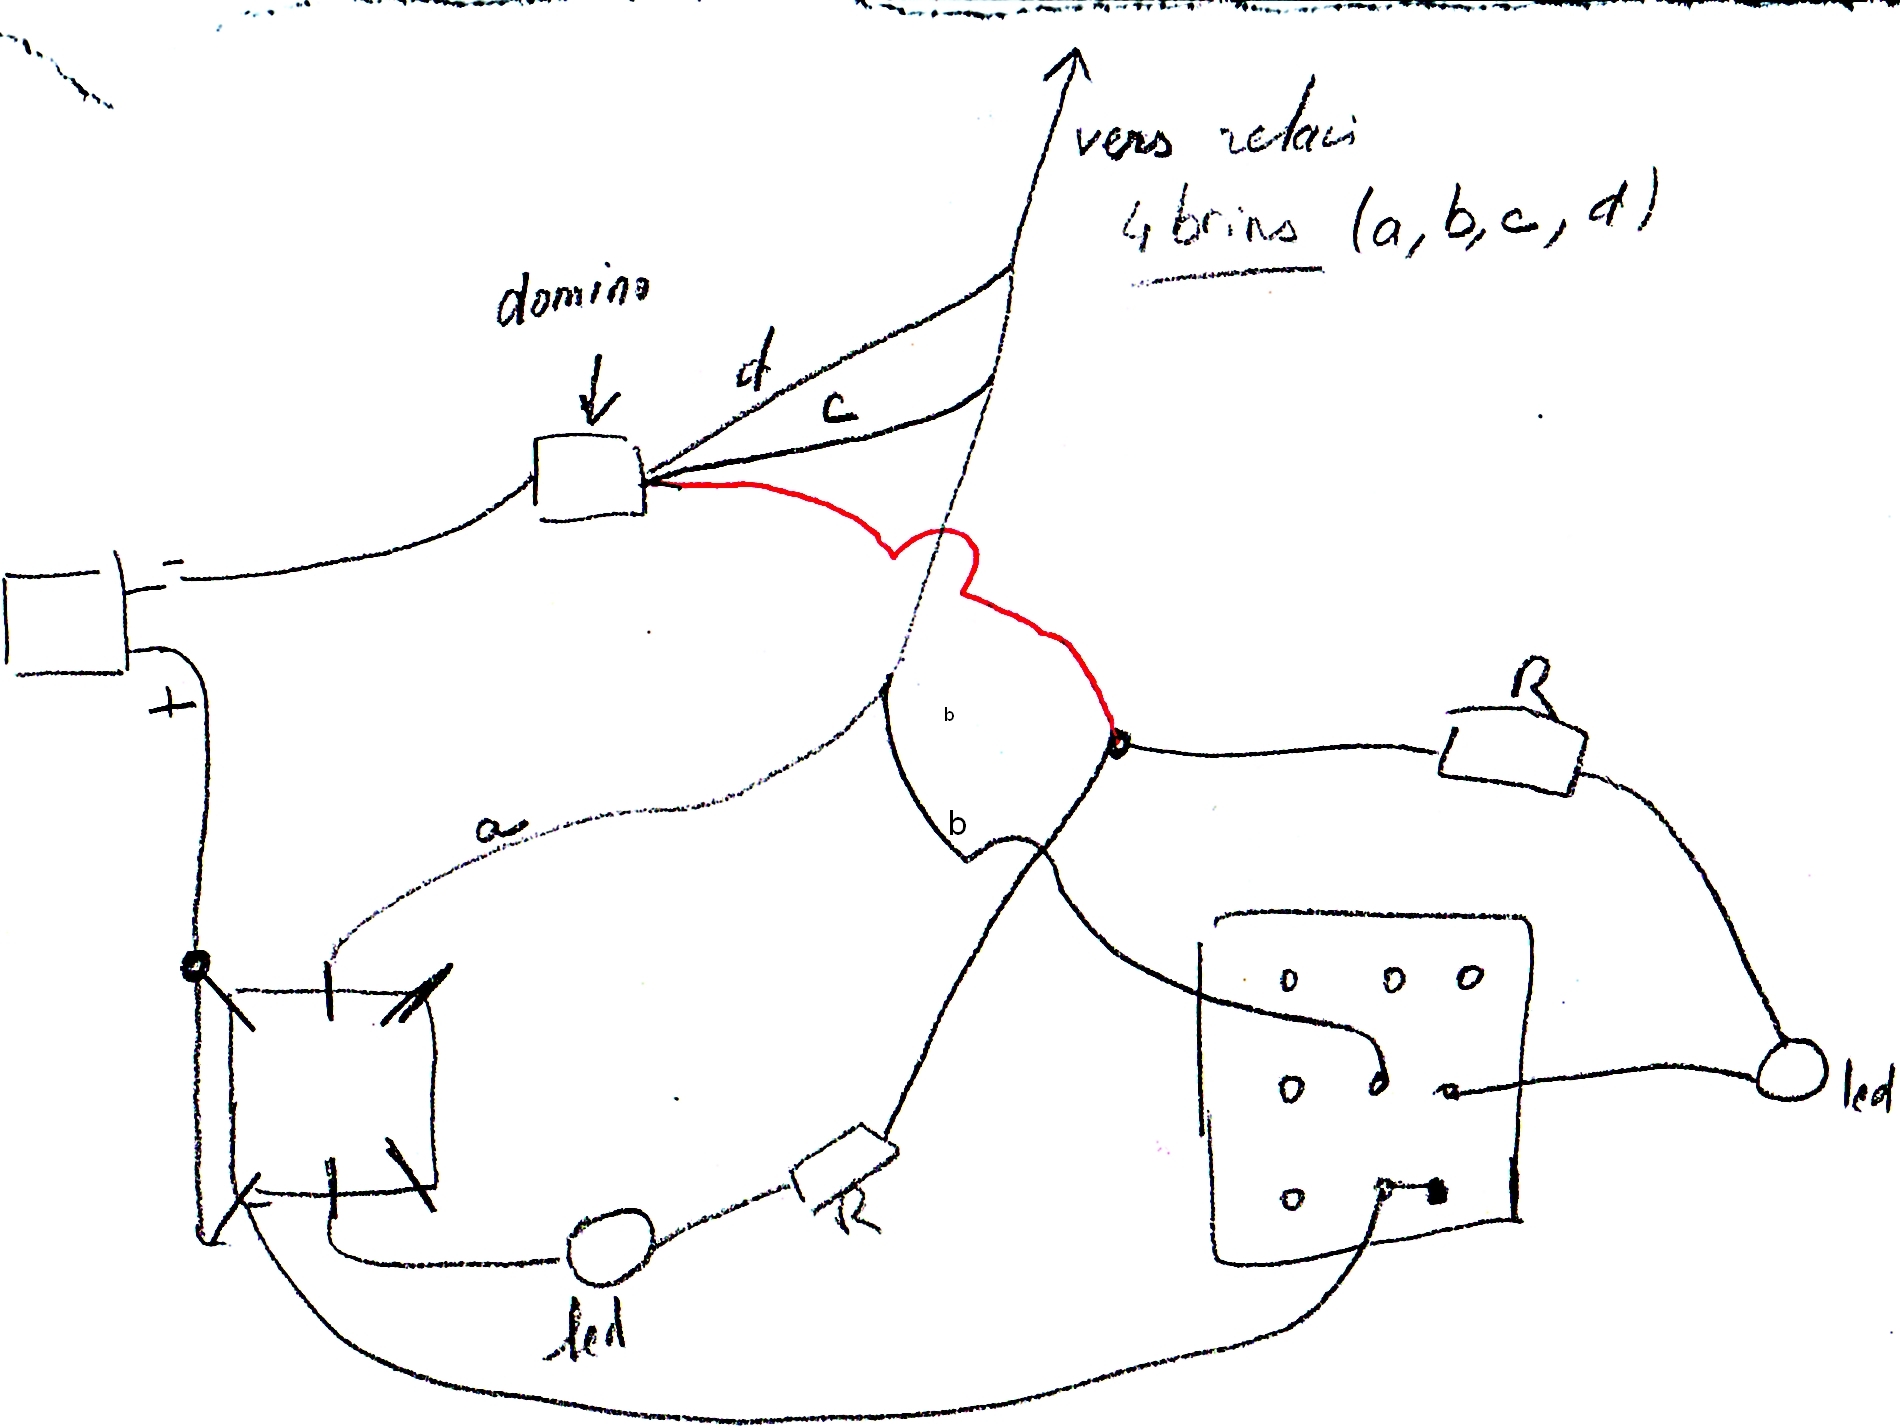 vers relais
4 brins (a, b, c, d)
domino
d
c
-
+
b
R
a
b
R
led
led